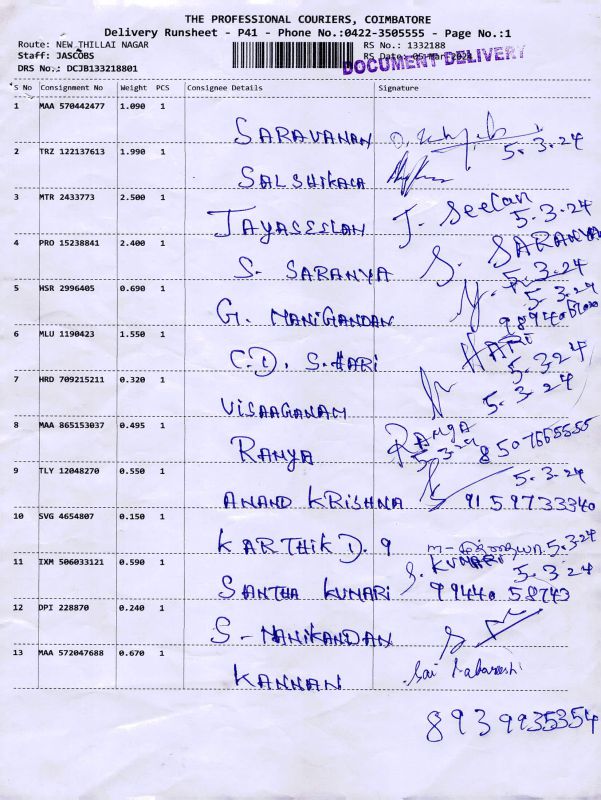 THE PROFESSIONAL COURIERS, COIMBATORE
Delivery Runsheet - P41 - Phone No.:0422-3505555 - Page No.:1
Route: NEW THILLAI NAGAR RS No.: 1332188
Staff: JASCOBS RS Date: 05-Mar-2024
DOCUMENT DELIVERY
DRS No.: DCJB133218801
S No Consignment No Weight PCS Consignee Details Signature
1 MAA 570442477 1.090 1
SARAVANAN 5.3.24
2 TRZ 122137613 1.990 1
SALSHIKALA
3 MTR 2433773 2.500 1
JAYASEELAN J. Seelan 5.3.24
4 PRO 15238841 2.400 1
S. SARANYA S. SARANYA 5.3.24
5 HSR 2996405 0.690 1
G. MANIGANDAN 5.3.24
6 MLU 1190423 1.550 1
C.D. S.HARI HARI 5.3.24
7 HRD 709215211 0.320 1
VISAAGANAM 5.3.24
8 MAA 865153037 0.495 1
RAMYA RAMYA 5.3.24 8507665555
9 TLY 12048270 0.550 1
5.3.24
ANAND KRISHNA 9159733340
10 SVG 4654807 0.150 1
KARTHIK D. 9 5.3.24
11 IXM 506033121 0.590 1
S. KUMARI 5.3.24
SANTHA KUMARI 99440 58743
12 DPI 228870 0.240 1
S-MANIKANDAN
13 MAA 572047688 0.670 1
KANNAN Sai
8939935354